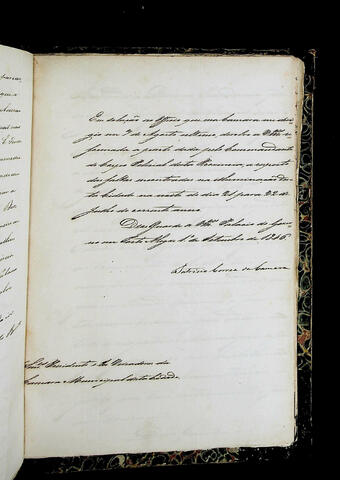 Em solução ao Officio que essa Camara me diri-
gio em 7 de Agosto ultimo, devolvo a VMces. in-
formada a parte dada pelo Commandante
do Corpo Policial desta Provincia, a respeito
das faltas encontradas na illuminação des-
ta Cidade na noite do dia 21 para 22 de
Julho do corrente anno.
Deos Guarde a VMces. Palacio do Gover-
no em Porto Alegre 1º de Setembro de 1846.
Patricio Correa da Camara
Snrs. Presidente e Vereadores da
Camara Municipal desta Cidade